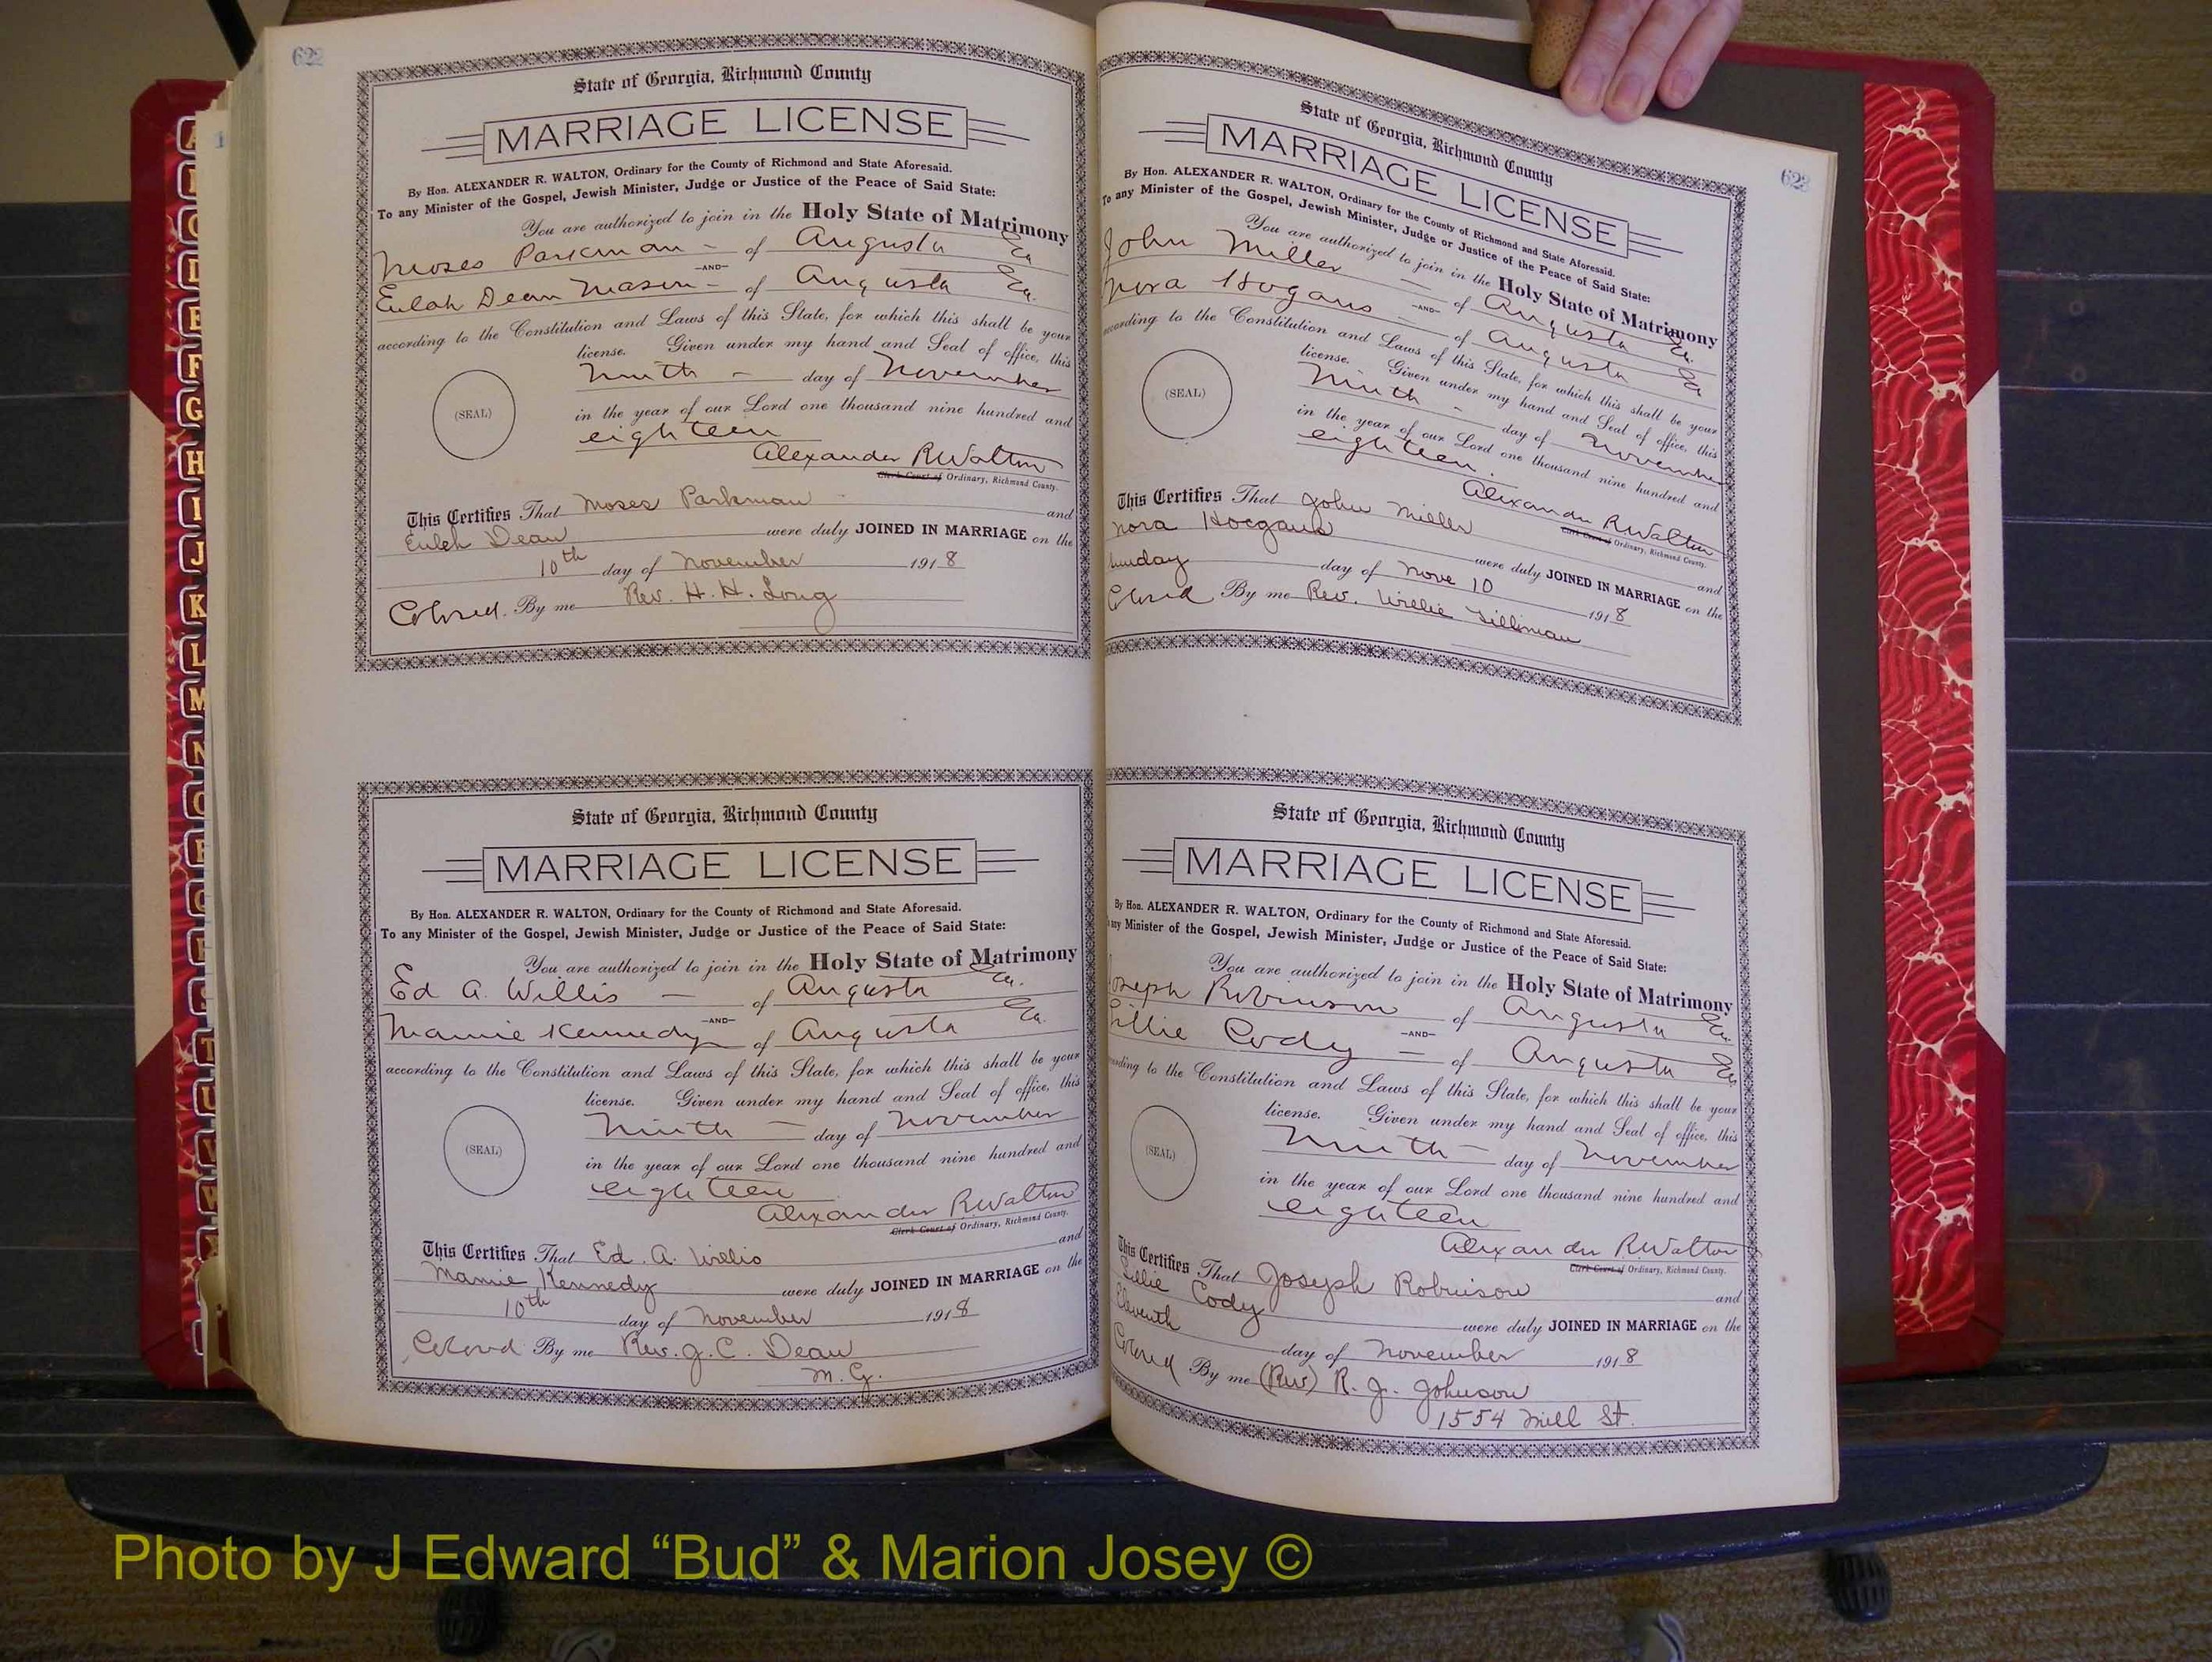 622
State of Georgia, Richmond County
MARRIAGE LICENSE
By Hon. ALEXANDER R. WALTON, Ordinary for the County of Richmond and State Aforesaid.
To any Minister of the Gospel, Jewish Minister, Judge or Justice of the Peace of Said State:
You are authorized to join in the Holy State of Matrimony
Moses Parkman - of Augusta Ga
-AND-
Eulah Dean Mason - of Augusta Ga.
according to the Constitution and Laws of this State, for which this shall be your
license. Given under my hand and Seal of office, this
Ninth - day of November
(SEAL)
in the year of our Lord one thousand nine hundred and
eighteen
Alexander R Walton
Clerk Court of Ordinary, Richmond County.
This Certifies That Moses Parkman and
Euleh Dean were duly JOINED IN MARRIAGE on the
10th day of November 1918
Colored. By me Rev. H. H. Long
State of Georgia, Richmond County
MARRIAGE LICENSE
By Hon. ALEXANDER R. WALTON, Ordinary for the County of Richmond and State Aforesaid.
To any Minister of the Gospel, Jewish Minister, Judge or Justice of the Peace of Said State:
You are authorized to join in the Holy State of Matrimony
Ed A. Willis - of Augusta Ga.
-AND-
Mamie Kennedy of Augusta Ga.
according to the Constitution and Laws of this State, for which this shall be your
license. Given under my hand and Seal of office, this
Ninth - day of November
(SEAL)
in the year of our Lord one thousand nine hundred and
eighteen
Alexander R. Walton
Clerk Court of Ordinary, Richmond County.
This Certifies That Ed. A. Willis and
Mamie Kennedy were duly JOINED IN MARRIAGE on the
10th day of November 1918
Colored By me Rev. J. C. Dean
M. G.
623
State of Georgia, Richmond County
MARRIAGE LICENSE
By Hon. ALEXANDER R. WALTON, Ordinary for the County of Richmond and State Aforesaid.
To any Minister of the Gospel, Jewish Minister, Judge or Justice of the Peace of Said State:
You are authorized to join in the Holy State of Matrimony
John Miller - of Augusta Ga.
-AND-
Nora Hogans of Augusta Ga
according to the Constitution and Laws of this State, for which this shall be your
license. Given under my hand and Seal of office, this
Ninth - day of November
(SEAL)
in the year of our Lord one thousand nine hundred and
eighteen.
Alexander R. Walton
Clerk Court of Ordinary, Richmond County.
This Certifies That John Miller and
Nora Hoegans were duly JOINED IN MARRIAGE on the
Sunday day of Nove 10 1918
Colored By me Rev. Willie Tillman
State of Georgia, Richmond County
MARRIAGE LICENSE
By Hon. ALEXANDER R. WALTON, Ordinary for the County of Richmond and State Aforesaid.
any Minister of the Gospel, Jewish Minister, Judge or Justice of the Peace of Said State:
You are authorized to join in the Holy State of Matrimony
Joseph Robinson of Augusta Ga.
-AND-
Lillie Cody - of Augusta Ga.
according to the Constitution and Laws of this State, for which this shall be your
license. Given under my hand and Seal of office, this
Ninth - day of November
(SEAL)
in the year of our Lord one thousand nine hundred and
eighteen
Alexander R. Walton
Clerk Court of Ordinary, Richmond County.
This Certifies That Joseph Robinson and
Lillie Cody were duly JOINED IN MARRIAGE on the
Eleventh day of November 1918
Colored By me (Rev) R. J. Johnson
1554 Mill St.
Photo by J Edward “Bud” & Marion Josey ©